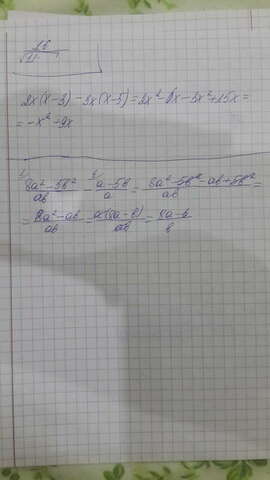 2x(x-3) - 3x(x-5) = 2x² - 6x - 3x² + 15x =
= -x² - 9x
8a² - 5b² / ab - a - 5b / a = 8a² - 5b² - ab + 5b² / ab =
= 8a² - ab / ab = a(8a - b) / ab = 8a - b / b